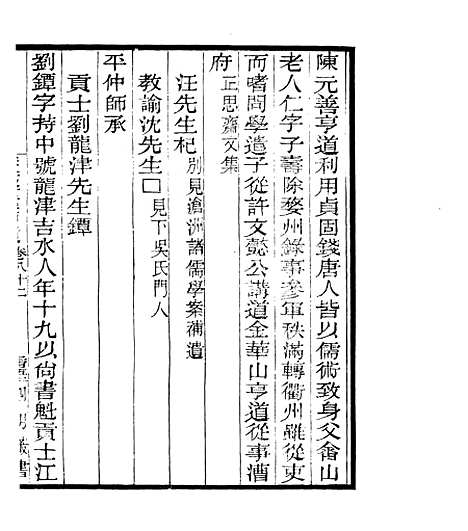 陳元善亨道利用貞固錢唐人皆以儒術致身父畲山
老人仁字子壽除婺州錄事參軍秩滿轉衢州雖從吏
而嗜問學遣子從許文懿公講道金華山亨道從事漕
府正思齋文集
汪先生杞別見滄洲諸儒學案補遺
教諭沈先生□見下吳氏門人
平仲師承
貢士劉龍津先生鐔
劉鐔字持中號龍津吉水人年十九以尙書魁貢士江
卷八十二
四明叢書